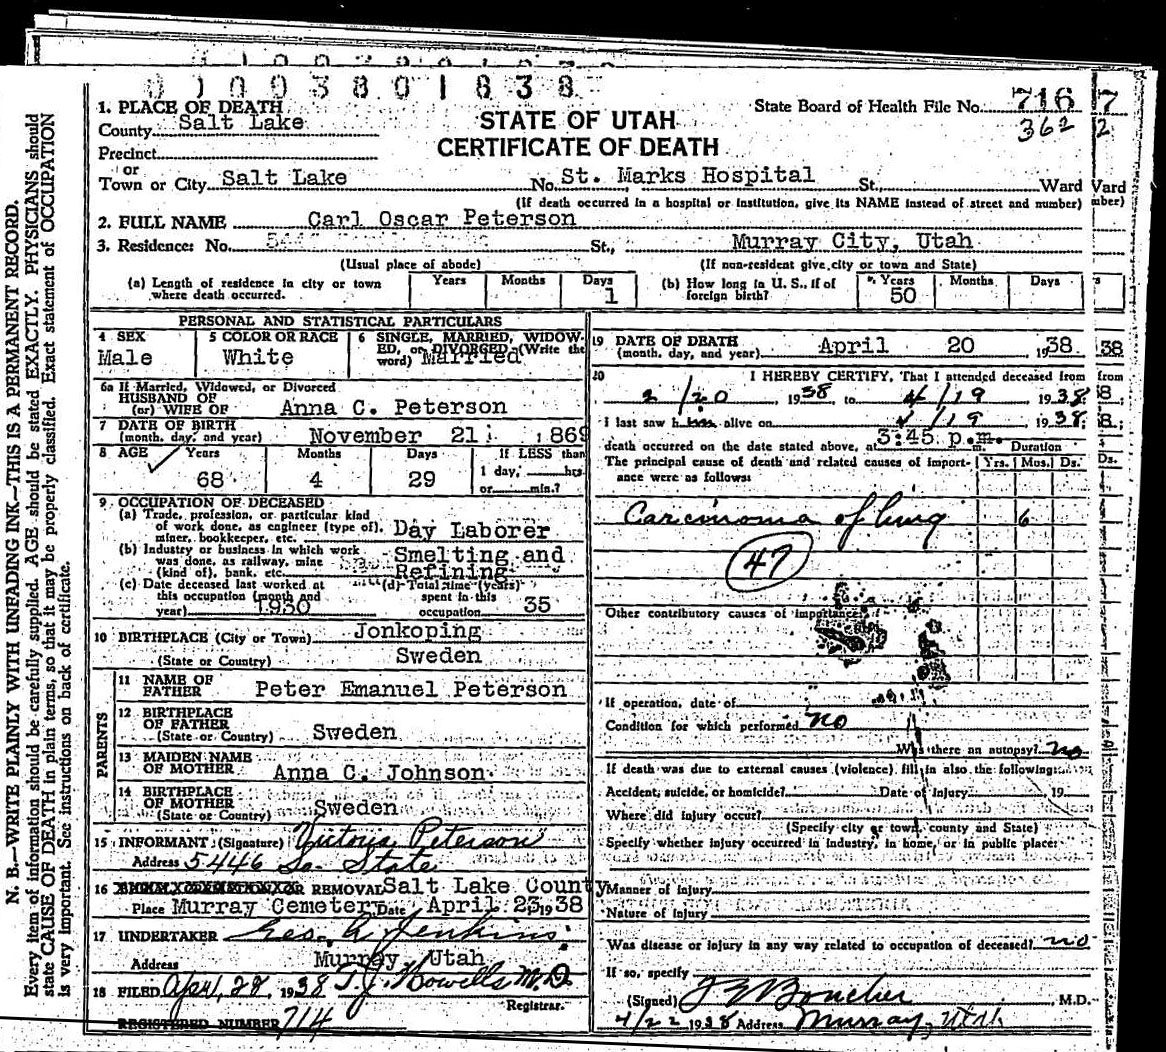 0100380 1838
1. PLACE OF DEATH
County Salt Lake
STATE OF UTAH
CERTIFICATE OF DEATH
State Board of Health File No. 716
362
Precinct
or
Town or City Salt Lake No. St. Marks Hospital St., Ward
(If death occurred in a hospital or institution, give its NAME instead of street and number)
2. FULL NAME Carl Oscar Peterson
3. Residence: No. St., Murray City, Utah
(Usual place of abode) (If non-resident give city or town and State)
(a) Length of residence in city or town where death occurred. Years Months Days 1
(b) How long in U. S., if of foreign birth? Years 50 Months Days
PERSONAL AND STATISTICAL PARTICULARS
4 SEX Male
5 COLOR OR RACE White
6 SINGLE, MARRIED, WIDOWED, or DIVORCED (Write the word) Married
6a If Married, Widowed, or Divorced
HUSBAND OF
(or) WIFE OF Anna C. Peterson
7 DATE OF BIRTH
(month, day, and year) November 21 1869
8 AGE Years 68 Months 4 Days 29
If LESS than 1 day, hrs. or min.?
9. OCCUPATION OF DECEASED
(a) Trade, profession, or particular kind of work done, as engineer (type of), miner, bookkeeper, etc. Day Laborer
(b) Industry or business in which work was done, as railway, mine (kind of), bank, etc. Smelting and Refining
(c) Date deceased last worked at this occupation (month and year) 1930
(d) Total time (years) spent in this occupation 35
10 BIRTHPLACE (City or Town) Jonkoping
(State or Country) Sweden
PARENTS
11 NAME OF FATHER Peter Emanuel Peterson
12 BIRTHPLACE OF FATHER
(State or Country) Sweden
13 MAIDEN NAME OF MOTHER Anna C. Johnson
14 BIRTHPLACE OF MOTHER
(State or Country) Sweden
15 INFORMANT (Signature) Victoria Peterson
Address 5446 So. State
16 OR REMOVAL Salt Lake County
Place Murray Cemetery Date April 23, 1938
17 UNDERTAKER Geo. A. Jenkins
Address Murray Utah
18 FILED Apr, 28, 1938 T. J. Howells M.D.
Registrar.
REGISTERED NUMBER 714
19 DATE OF DEATH
(month, day, and year) April 20, 1938
20 I HEREBY CERTIFY, That I attended deceased from
2/20, 1938, to 4/19 1938,
I last saw h alive on 4/19 1938;
death occurred on the date stated above, at 3:45 p.m. Duration
The principal cause of death and related causes of importance were as follows: Yrs. Mos. Ds.
Carcinoma of lung 6
47
Other contributory causes of importance:
If operation, date of
Condition for which performed no
Was there an autopsy? no
If death was due to external causes (violence) fill in also the following:
Accident, suicide, or homicide? Date of injury 19
Where did injury occur?
(Specify city or town, county and State)
Specify whether injury occurred in industry, in home, or in public place:
Manner of injury
Nature of injury
Was disease or injury in any way related to occupation of deceased? no
If so, specify
(Signed) J E Boucher, M.D.
4/22 1938 Address Murray, Utah
N. B.—WRITE PLAINLY WITH UNFADING INK—THIS IS A PERMANENT RECORD.
Every item of information should be carefully supplied. AGE should be stated EXACTLY. PHYSICIANS should
state CAUSE OF DEATH in plain terms, so that it may be properly classified. Exact statement of OCCUPATION
is very important. See instructions on back of certificate.